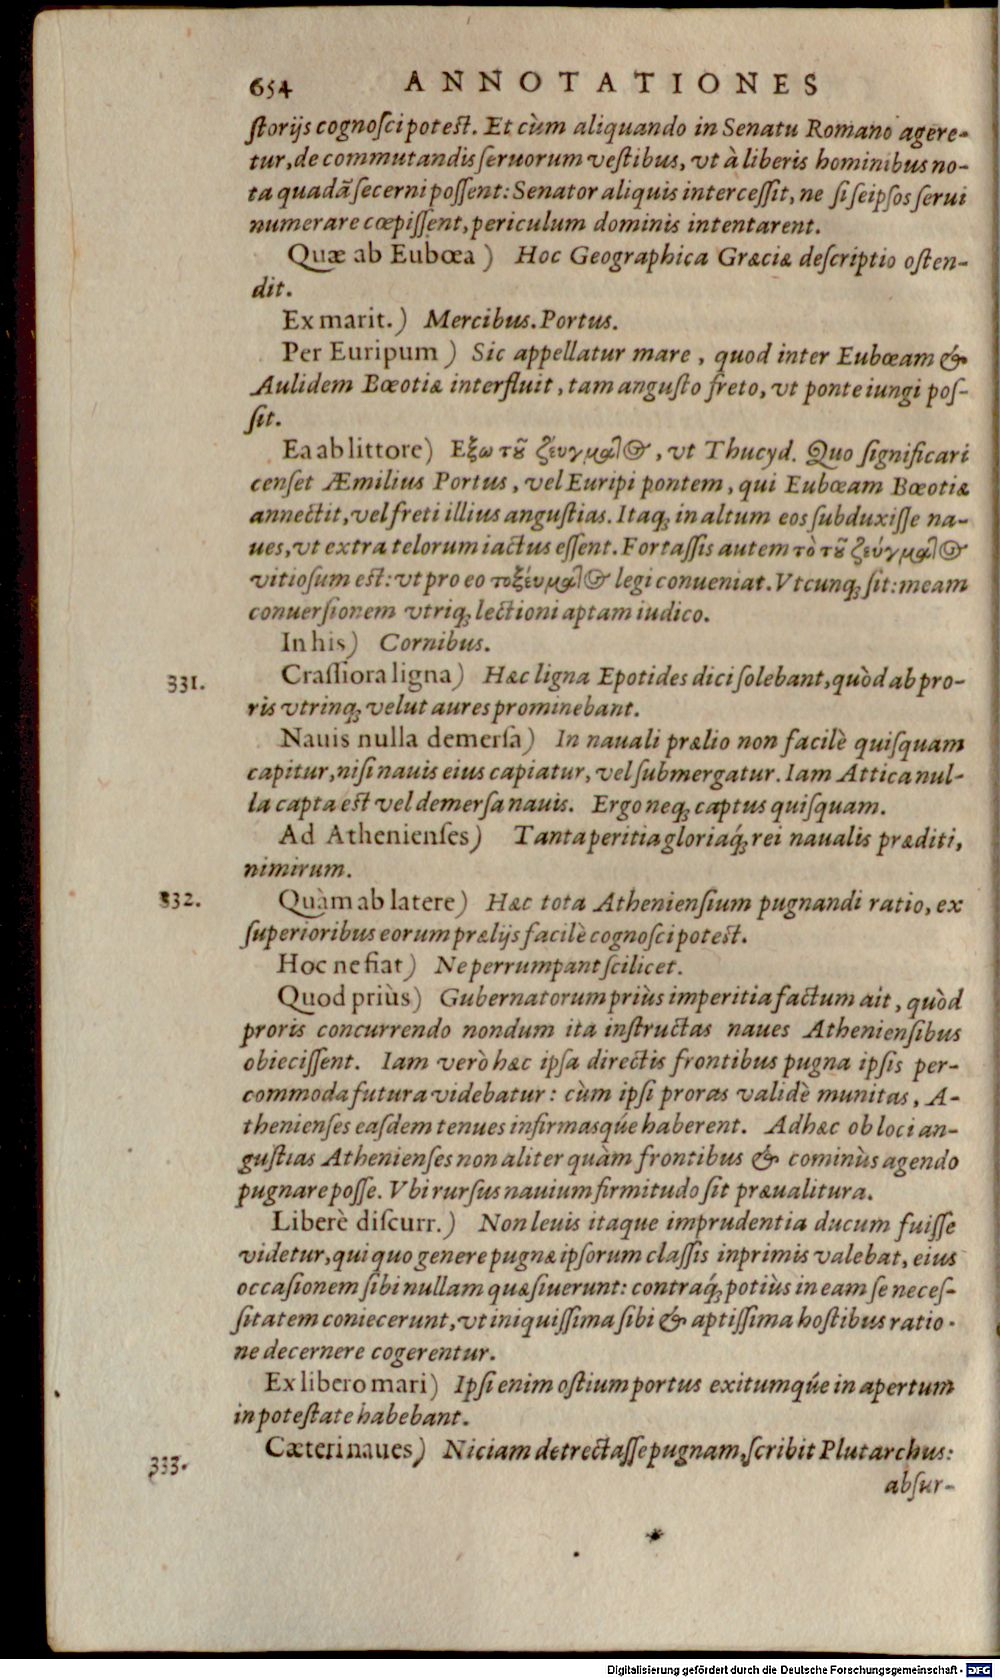 654 ANNOTATIONES
ſtorijs cognoſci poteſt. Et cùm aliquando in Senatu Romano agere-
tur, de commutandis ſeruorum veſtibus, vt à liberis hominibus no-
ta quadã ſecerni poſſent: Senator aliquis interceſſit, ne ſi ſeipſos ſerui
numerare cœpiſſent, periculum dominis intentarent.
Quæ ab Eubœa) Hoc Geographica Græciæ deſcriptio oſten-
dit.
Ex marit.) Mercibus. Portus.
Per Euripum) Sic appellatur mare, quod inter Eubœam &
Aulidem Bœotiæ interfluit, tam anguſto freto, vt ponte iungi poſ-
ſit.
Ea ab littore) Εξω τȣ͂ ζέυγμαῖος, vt Thucyd. Quo ſignificari
cenſet Æmilius Portus, vel Euripi pontem, qui Eubœam Bœotiæ
annectit, vel freti illius anguſtias. Itaq; in altum eos ſubduxiſſe na-
ues, vt extra telorum iactus eſſent. Fortaſſis autem τὸ τȣ͂ ζεύγμαῖος
vitioſum eſt: vt pro eo τοξέυμαῖος legi conueniat. Vtcunq; ſit: meam
conuerſionem vtriq; lectioni aptam iudico.
In his) Cornibus.
331. Craſſiora ligna) Hæc ligna Epotides dici ſolebant, quòd ab pro-
ris vtrinq; velut aures prominebant.
Nauis nulla demerſa) In nauali prælio non facilè quiſquam
capitur, niſi nauis eius capiatur, vel ſubmergatur. Iam Attica nul-
la capta eſt vel demerſa nauis. Ergo neq; captus quiſquam.
Ad Athenienſes) Tanta peritia gloriaq́; rei naualis præditi,
nimirum.
332. Quàm ab latere) Hæc tota Athenienſium pugnandi ratio, ex
ſuperioribus eorum prælijs facilè cognoſci poteſt.
Hoc ne fiat) Ne perrumpant ſcilicet.
Quod priùs) Gubernatorum priùs imperitia factum ait, quòd
proris concurrendo nondum ita inſtructas naues Athenienſibus
obieciſſent. Iam verò hæc ipſa directis frontibus pugna ipſis per-
commoda futura videbatur: cùm ipſi proras validè munitas, A-
thenienſes eaſdem tenues infirmasq́ue haberent. Adhæc ob loci an-
guſtias Athenienſes non aliter quàm frontibus & cominùs agendo
pugnare poſſe. Vbi rurſus nauium firmitudo ſit præualitura.
Liberè diſcurr.) Non leuis itaque imprudentia ducum fuiſſe
videtur, qui quo genere pugnæ ipſorum claſſis inprimis valebat, eius
occaſionem ſibi nullam quæſiuerunt: contraq́; potiùs in eam ſe neceſ-
ſitatem coniecerunt, vt iniquiſſima ſibi & aptiſſima hoſtibus ratio-
ne decernere cogerentur.
Ex libero mari) Ipſi enim oſtium portus exitumq́ue in apertum
in poteſtate habebant.
333. Cæteri naues) Niciam detrectaſſe pugnam, ſcribit Plutarchus:
abſur-
Digitalisierung gefördert durch die Deutsche Forschungsgemeinschaft - DFG